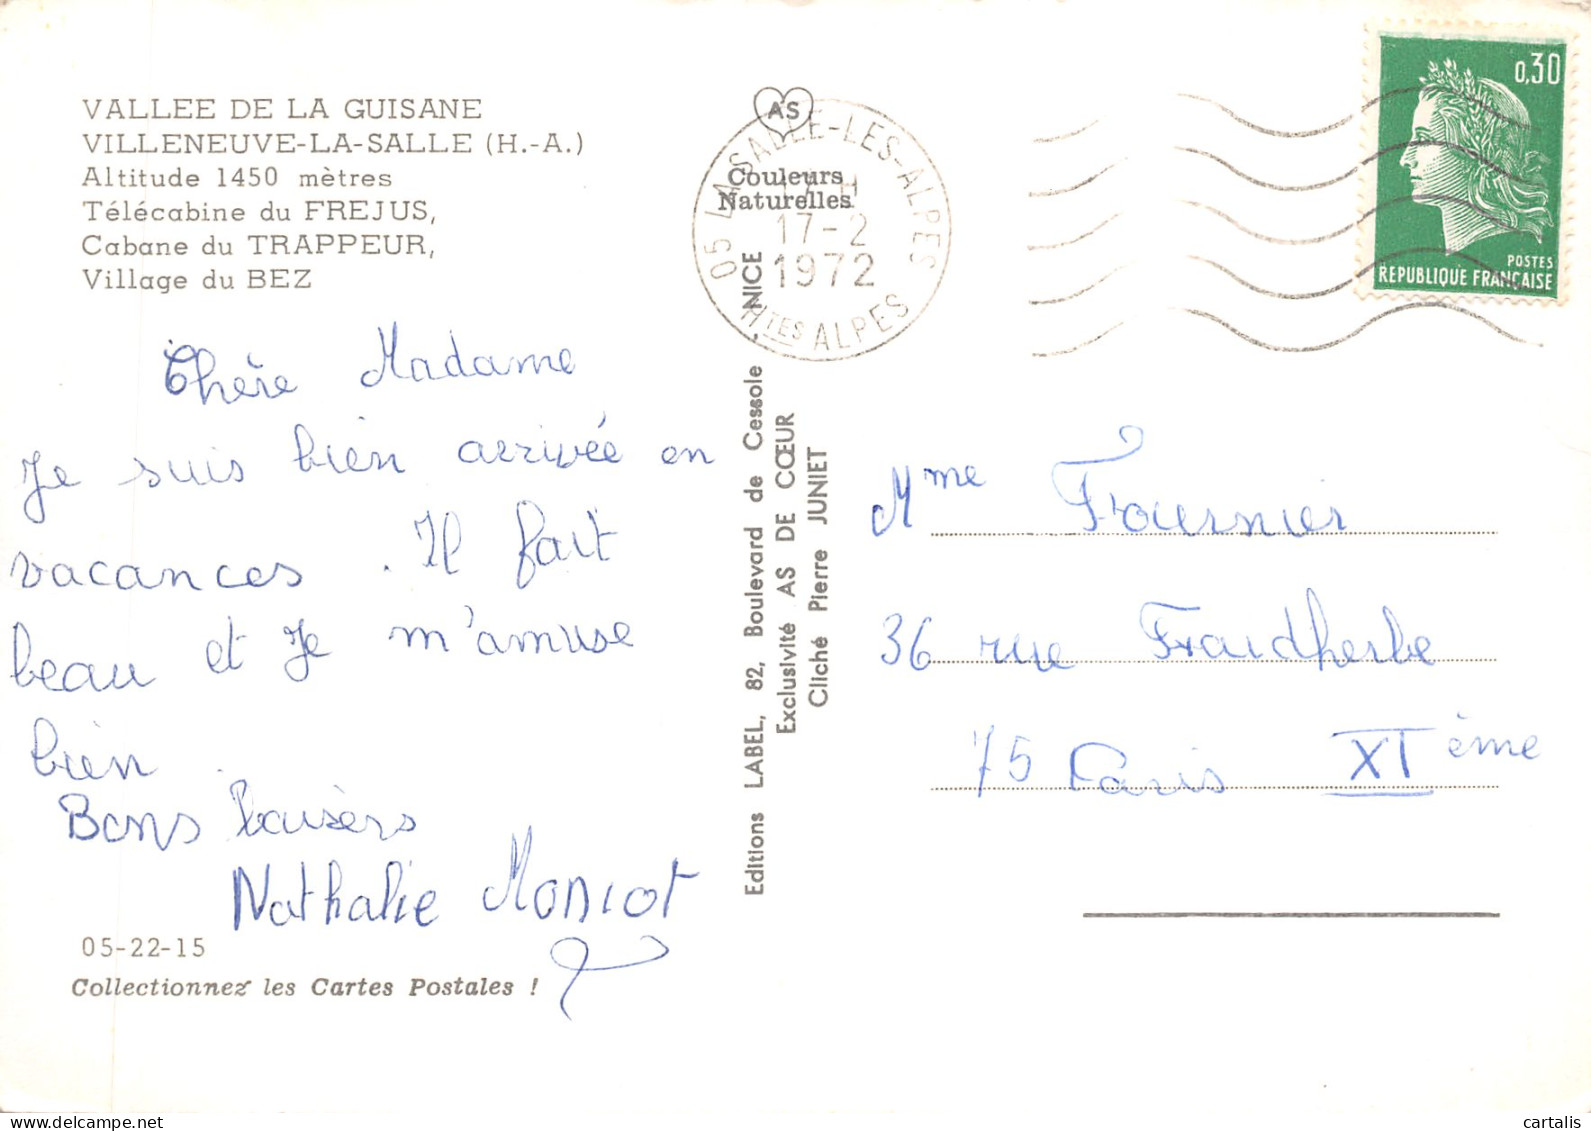 VALLEE DE LA GUISANE
VILLENEUVE-LA-SALLE (H.-A.)
Altitude 1450 mètres
Télécabine du FREJUS,
Cabane du TRAPPEUR,
Village du BEZ
Chère Madame
Je suis bien arrivée en
vacances. Il fait
beau et Je m'amuse
bien
Bons baisers
Nathalie Moniot
05-22-15
Collectionnez les Cartes Postales !
AS
Couleurs
Naturelles
05 LA SALLE-LES-ALPES
17-2
1972
HTES ALPES
Editions LABEL, 82, Boulevard de Cessole, NICE
Exclusivité AS DE CŒUR
Cliché Pierre JUNIET
0,30
POSTES
REPUBLIQUE FRANÇAISE
Mme Fournier
36 rue Fraidherbe
75 Paris XIème
delcampe.net
cartalis